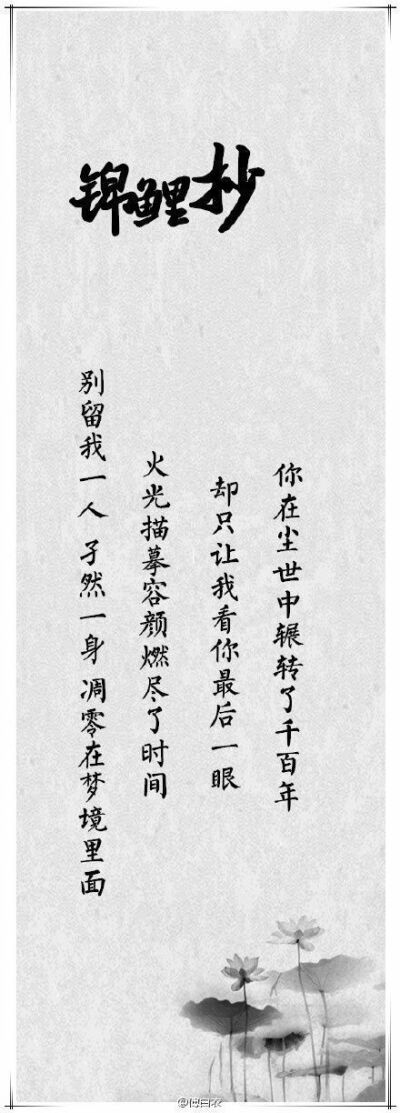 锦鲤抄
你在尘世中辗转了千百年
却只让我看你最后一眼
火光描摹容颜燃尽了时间
别留我一人 孑然一身 凋零在梦境里面